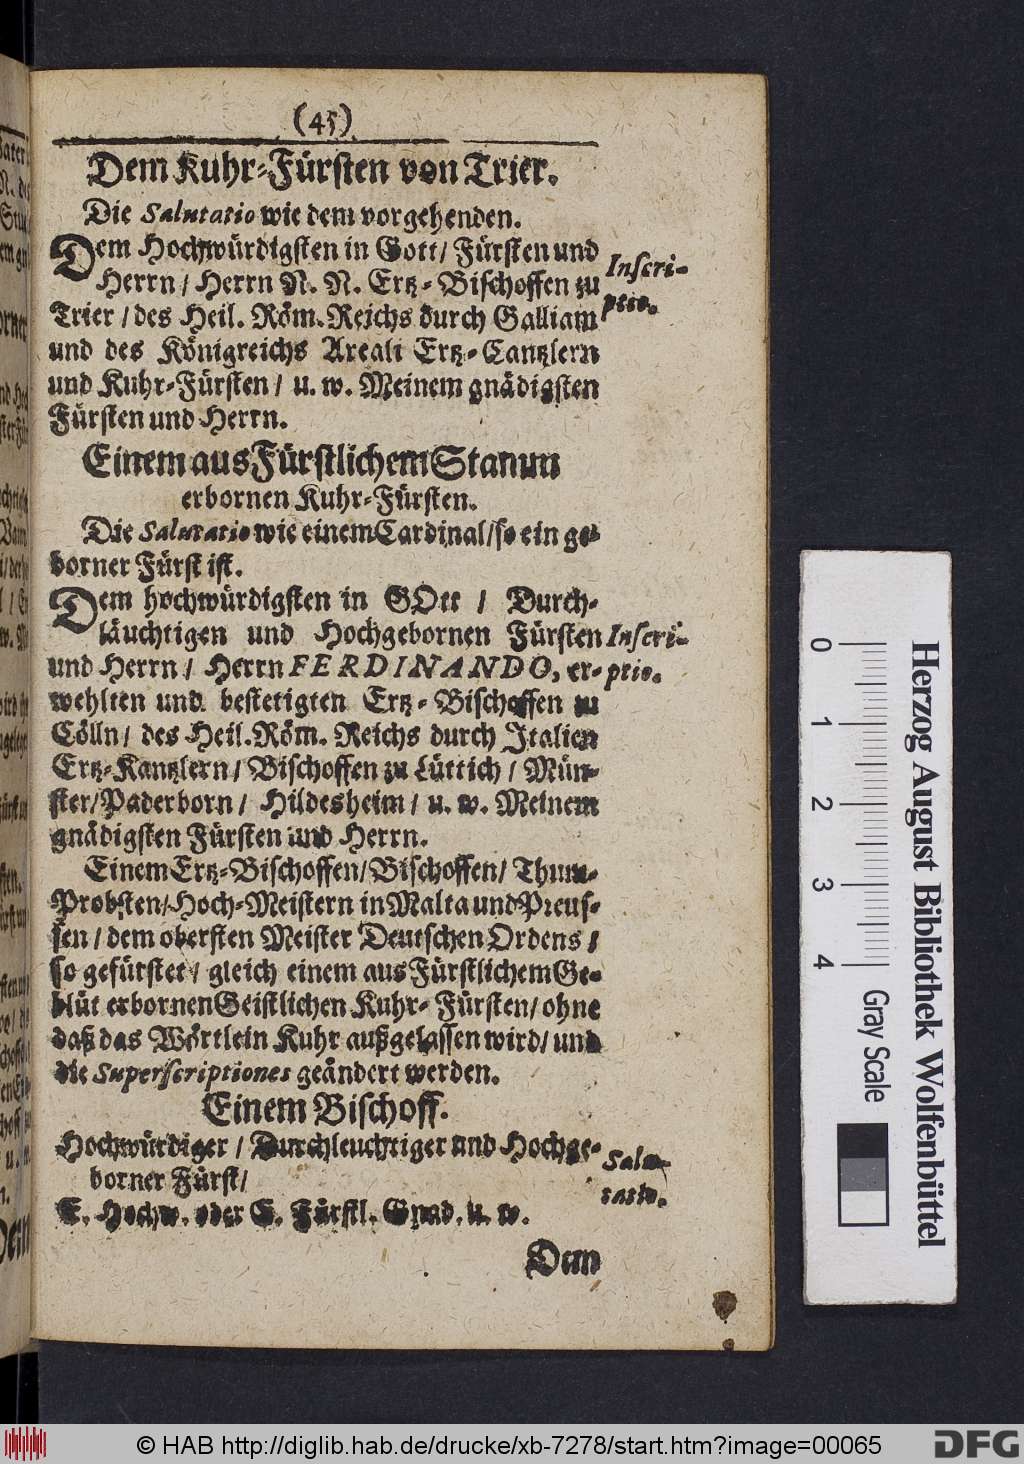 (45)
Dem Kuhr-Fürsten von Trier.
Die Salutatio wie dem vorgehenden.
Dem Hochwürdigsten in Gott/ Fürsten und
Herrn/ Herrn N. N. Ertz-Bischoffen zu
Trier/ des Heil. Röm. Reichs durch Galliam
und des Königreichs Areali Ertz-Cantzlern
und Kuhr-Fürsten/ u. w. Meinem gnädigsten
Fürsten und Herrn.
Inscri-
ptio.
Einem aus Fürstlichem Stamm
erbornen Kuhr-Fürsten.
Die Salutatio wie einem Cardinal/ so ein ge-
borner Fürst ist.
Dem hochwürdigsten in GOtt / Durch-
läuchtigen und Hochgebornen Fürsten
und Herrn/ Herrn FERDINANDO, er-
wehlten und bestetigten Ertz-Bischoffen zu
Cölln/ des Heil. Röm. Reichs durch Italien
Ertz-Kantzlern/ Bischoffen zu Lüttich / Mün-
ster/ Paderborn/ Hildesheim/ u. w. Meinem
gnädigsten Fürsten und Herrn.
Inscri-
ptio.
Einem Ertz-Bischoffen/ Bischoffen/ Thum-
Probsten/ Hoch-Meistern in Malta und Preus-
sen/ dem obersten Meister Deutschen Ordens/
so gefürstet/ gleich einem aus Fürstlichem Ge-
blüt erbornen Geistlichen Kuhr-Fürsten/ ohne
daß das Wörtlein Kuhr außgelassen wird/ und
die Superscriptiones geändert werden.
Einem Bischoff.
Hochwürdiger / Durchleuchtiger und Hochge-
borner Fürst/
E. Hochw. oder E. Fürstl. Gnad. u. w.
Salu-
tatio.
Dem
0 1 2 3 4
Gray Scale
Herzog August Bibliothek Wolfenbüttel
© HAB http://diglib.hab.de/drucke/xb-7278/start.htm?image=00065
DFG